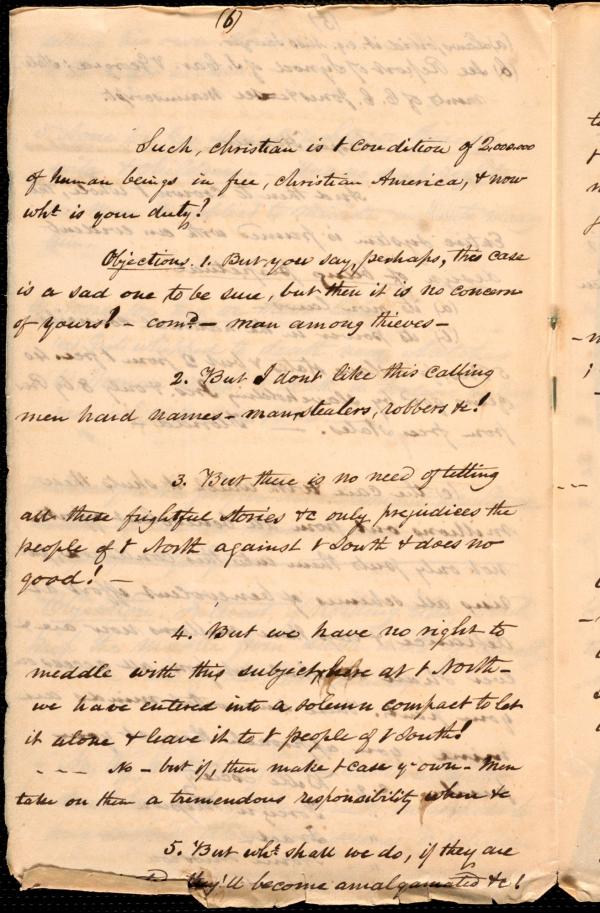 (6)
Such, christian is t condition of 2,000,000
of human beings in free, christian America, & now
wht is your duty?
Objections. 1. But you say, perhaps, this case
is a sad one to be sure, but then it is no concern
of yours! – comd – man among thieves –
2. But I dont like this calling
men hard names – man, stealers, robbers &c!
3. But there is no need of telling
all these frightful stories &c only prejudices the
people of t North against t South & does no
good! –
4. But we have no right to
meddle with this subject, here at t North –
we have entered into a solemn compact to let
it alone & leave it to t people of t South!
- - - No – but if, then make t case yr own – Men
take on them a tremendous responsibility when &c
5. But wht shall we do, if they are
they'll become amalgamated &c!